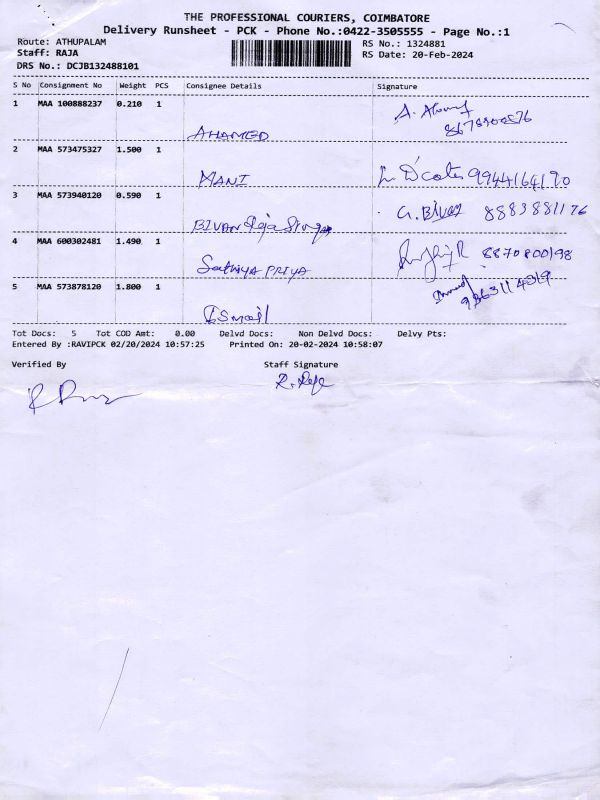 THE PROFESSIONAL COURIERS, COIMBATORE
Delivery Runsheet - PCK - Phone No.:0422-3505555 - Page No.:1
Route: ATHUPALAM RS No.: 1324881
Staff: RAJA RS Date: 20-Feb-2024
DRS No.: DCJB132488101
S No Consignment No Weight PCS Consignee Details Signature
1 MAA 100888237 0.210 1
AHAMED
2 MAA 573475327 1.500 1
MANI 9944164190
3 MAA 573940120 0.590 1 8883881176
BIVAN Raja Singh
4 MAA 600302481 1.490 1 8870800198
Sathiya PRIYA
5 MAA 573878120 1.800 1
ISmail
Tot Docs: 5 Tot COD Amt: 0.00 Delvd Docs: Non Delvd Docs: Delvy Pts:
Entered By :RAVIPCK 02/20/2024 10:57:25 Printed On: 20-02-2024 10:58:07
Verified By Staff Signature
R. Raja